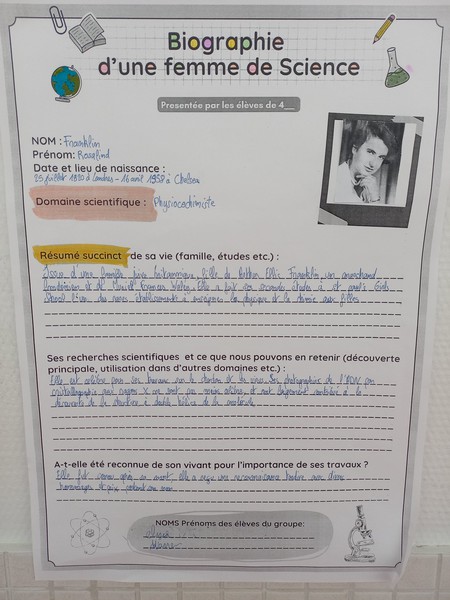 Biographie
d'une femme de Science
Présentée par les élèves de 4__
NOM : Franklin
Prénom: Rosalind
Date et lieu de naissance :
25 juillet 1920 à Londres - 16 avril 1958 à Chelsea
Domaine scientifique : Physicochimiste
Résumé succinct de sa vie (famille, études etc.) :
Issue d'une famille juive britannique, fille de Arthur Ellis Franklin, un marchand
londonien et de Muriel Frances Waley. Elle a fait ses secondes études à St Paul's Girls
School l'un des rares établissements à enseigner la physique et la chimie aux filles
Ses recherches scientifiques et ce que nous pouvons en retenir (découverte
principale, utilisation dans d'autres domaines etc.) :
Elle est célèbre pour ses travaux sur le charbon et les virus. Ses photographies de l'ADN par
cristallographie aux rayons X ne sont pas moins célèbres, et ont largement contribué à la
découverte de la structure à double hélice de la molécule
A-t-elle été reconnue de son vivant pour l'importance de ses travaux ?
Elle fut connue après sa mort, elle a reçu une reconnaissance tardive avec divers
hommages et prix portant son nom
NOMS Prénoms des élèves du groupe: